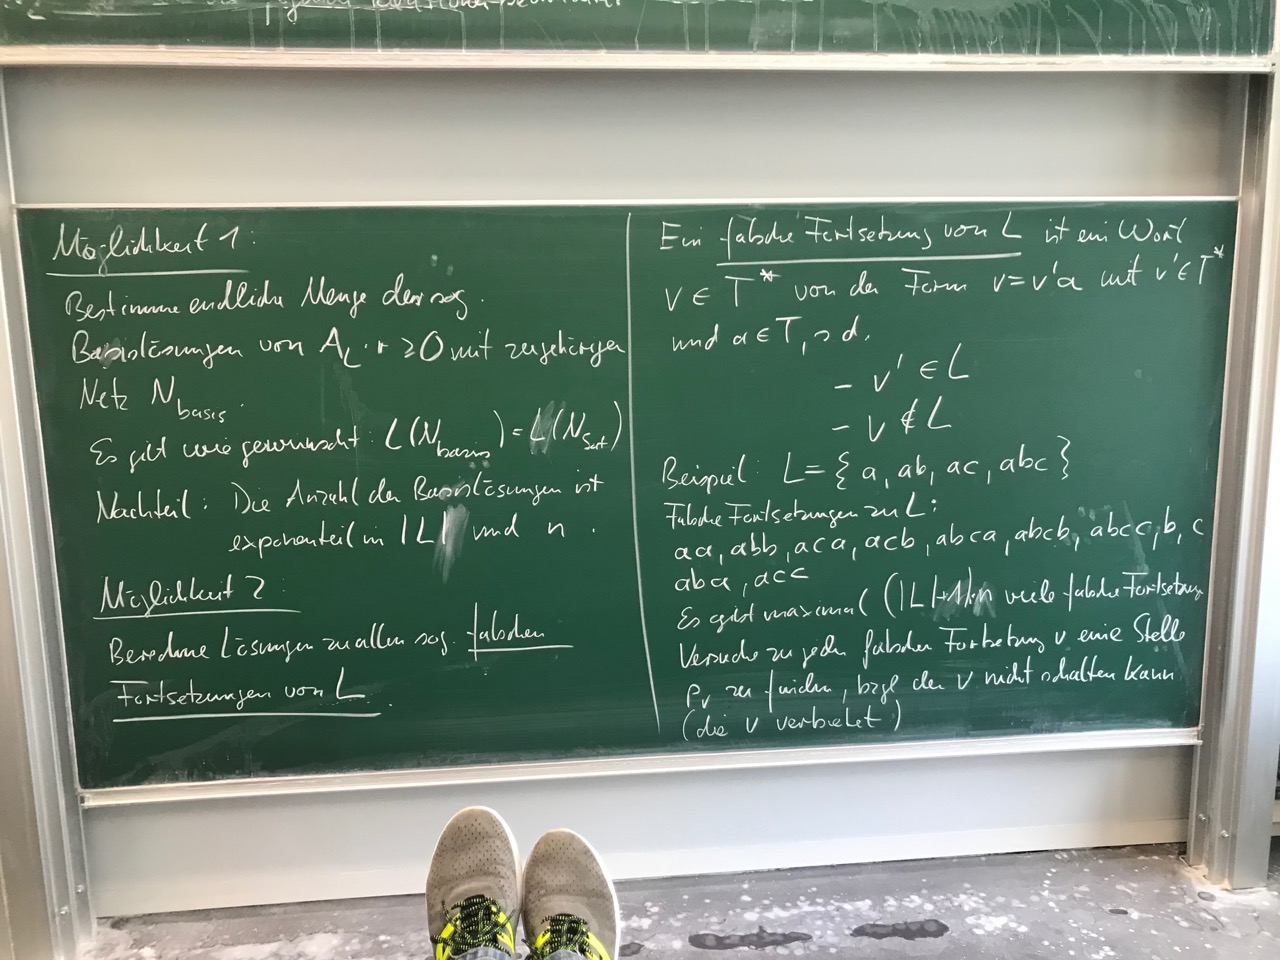 Möglichkeit 1:
Bestimme endliche Menge der sog.
Basislösungen von A_L · r ≥ 0 mit zugehörigen
Netz N_basis.
Es gilt wie gewünscht: L(N_basis) = L(N_sat)
Nachteil: Die Anzahl der Basislösungen ist
exponentiell in |L| und n.
Möglichkeit 2:
Berechne Lösungen zu allen sog. falschen
Fortsetzungen von L.
Ein falsche Fortsetzung von L ist ein Wort
v ∈ T* von der Form v = v'a mit v' ∈ T*
und a ∈ T, sd.
- v' ∈ L
- v ∉ L
Beispiel: L = { a, ab, ac, abc }
Falsche Fortsetzungen zu L:
aa, abb, aca, acb, abca, abcb, abcc, b, c
aba, acc
Es gibt maximal (|L|+1)·n viele falsche Fortsetzung
Versuche zu jeder falschen Fortsetzung v eine Stelle
p_v zu finden, bzgl der v nicht schalten kann
(die v verbietet)